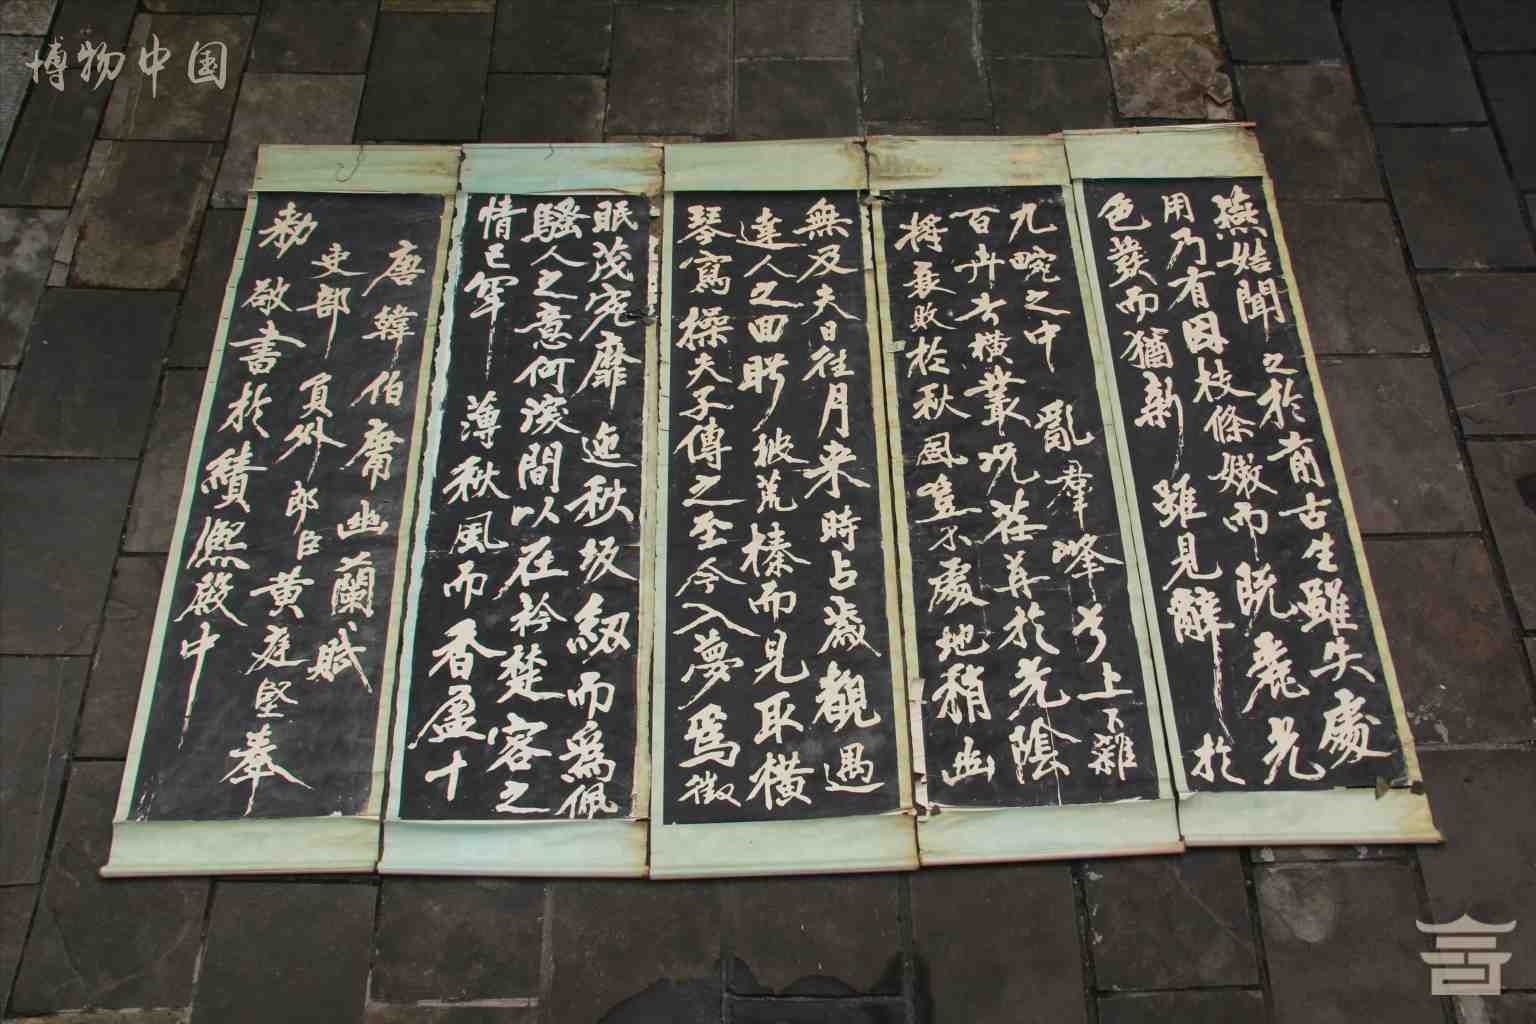 博物中国
燕姞聞之於前古生雖失處
用乃有因枝條嫩而既麗光
色發而猶新雖見辭於
九畹之中亂群峰兮上下雜
百卉兮橫叢況荏苒於光陰
將衰敗於秋風豈不處地稍幽
無及夫日往月來時占歲觀遇
達人之回盻披荒榛而見取橫
琴寫操夫子傳之至今入夢為徵
眠茂宛靡迤秋坂紉而為佩
騷人之意何深間以在衿楚客之
情已罕薄秋風而香盈十
唐韓伯庸幽蘭賦
吏部員外郎臣黃庭堅奉
敕敬書於績熙殿中